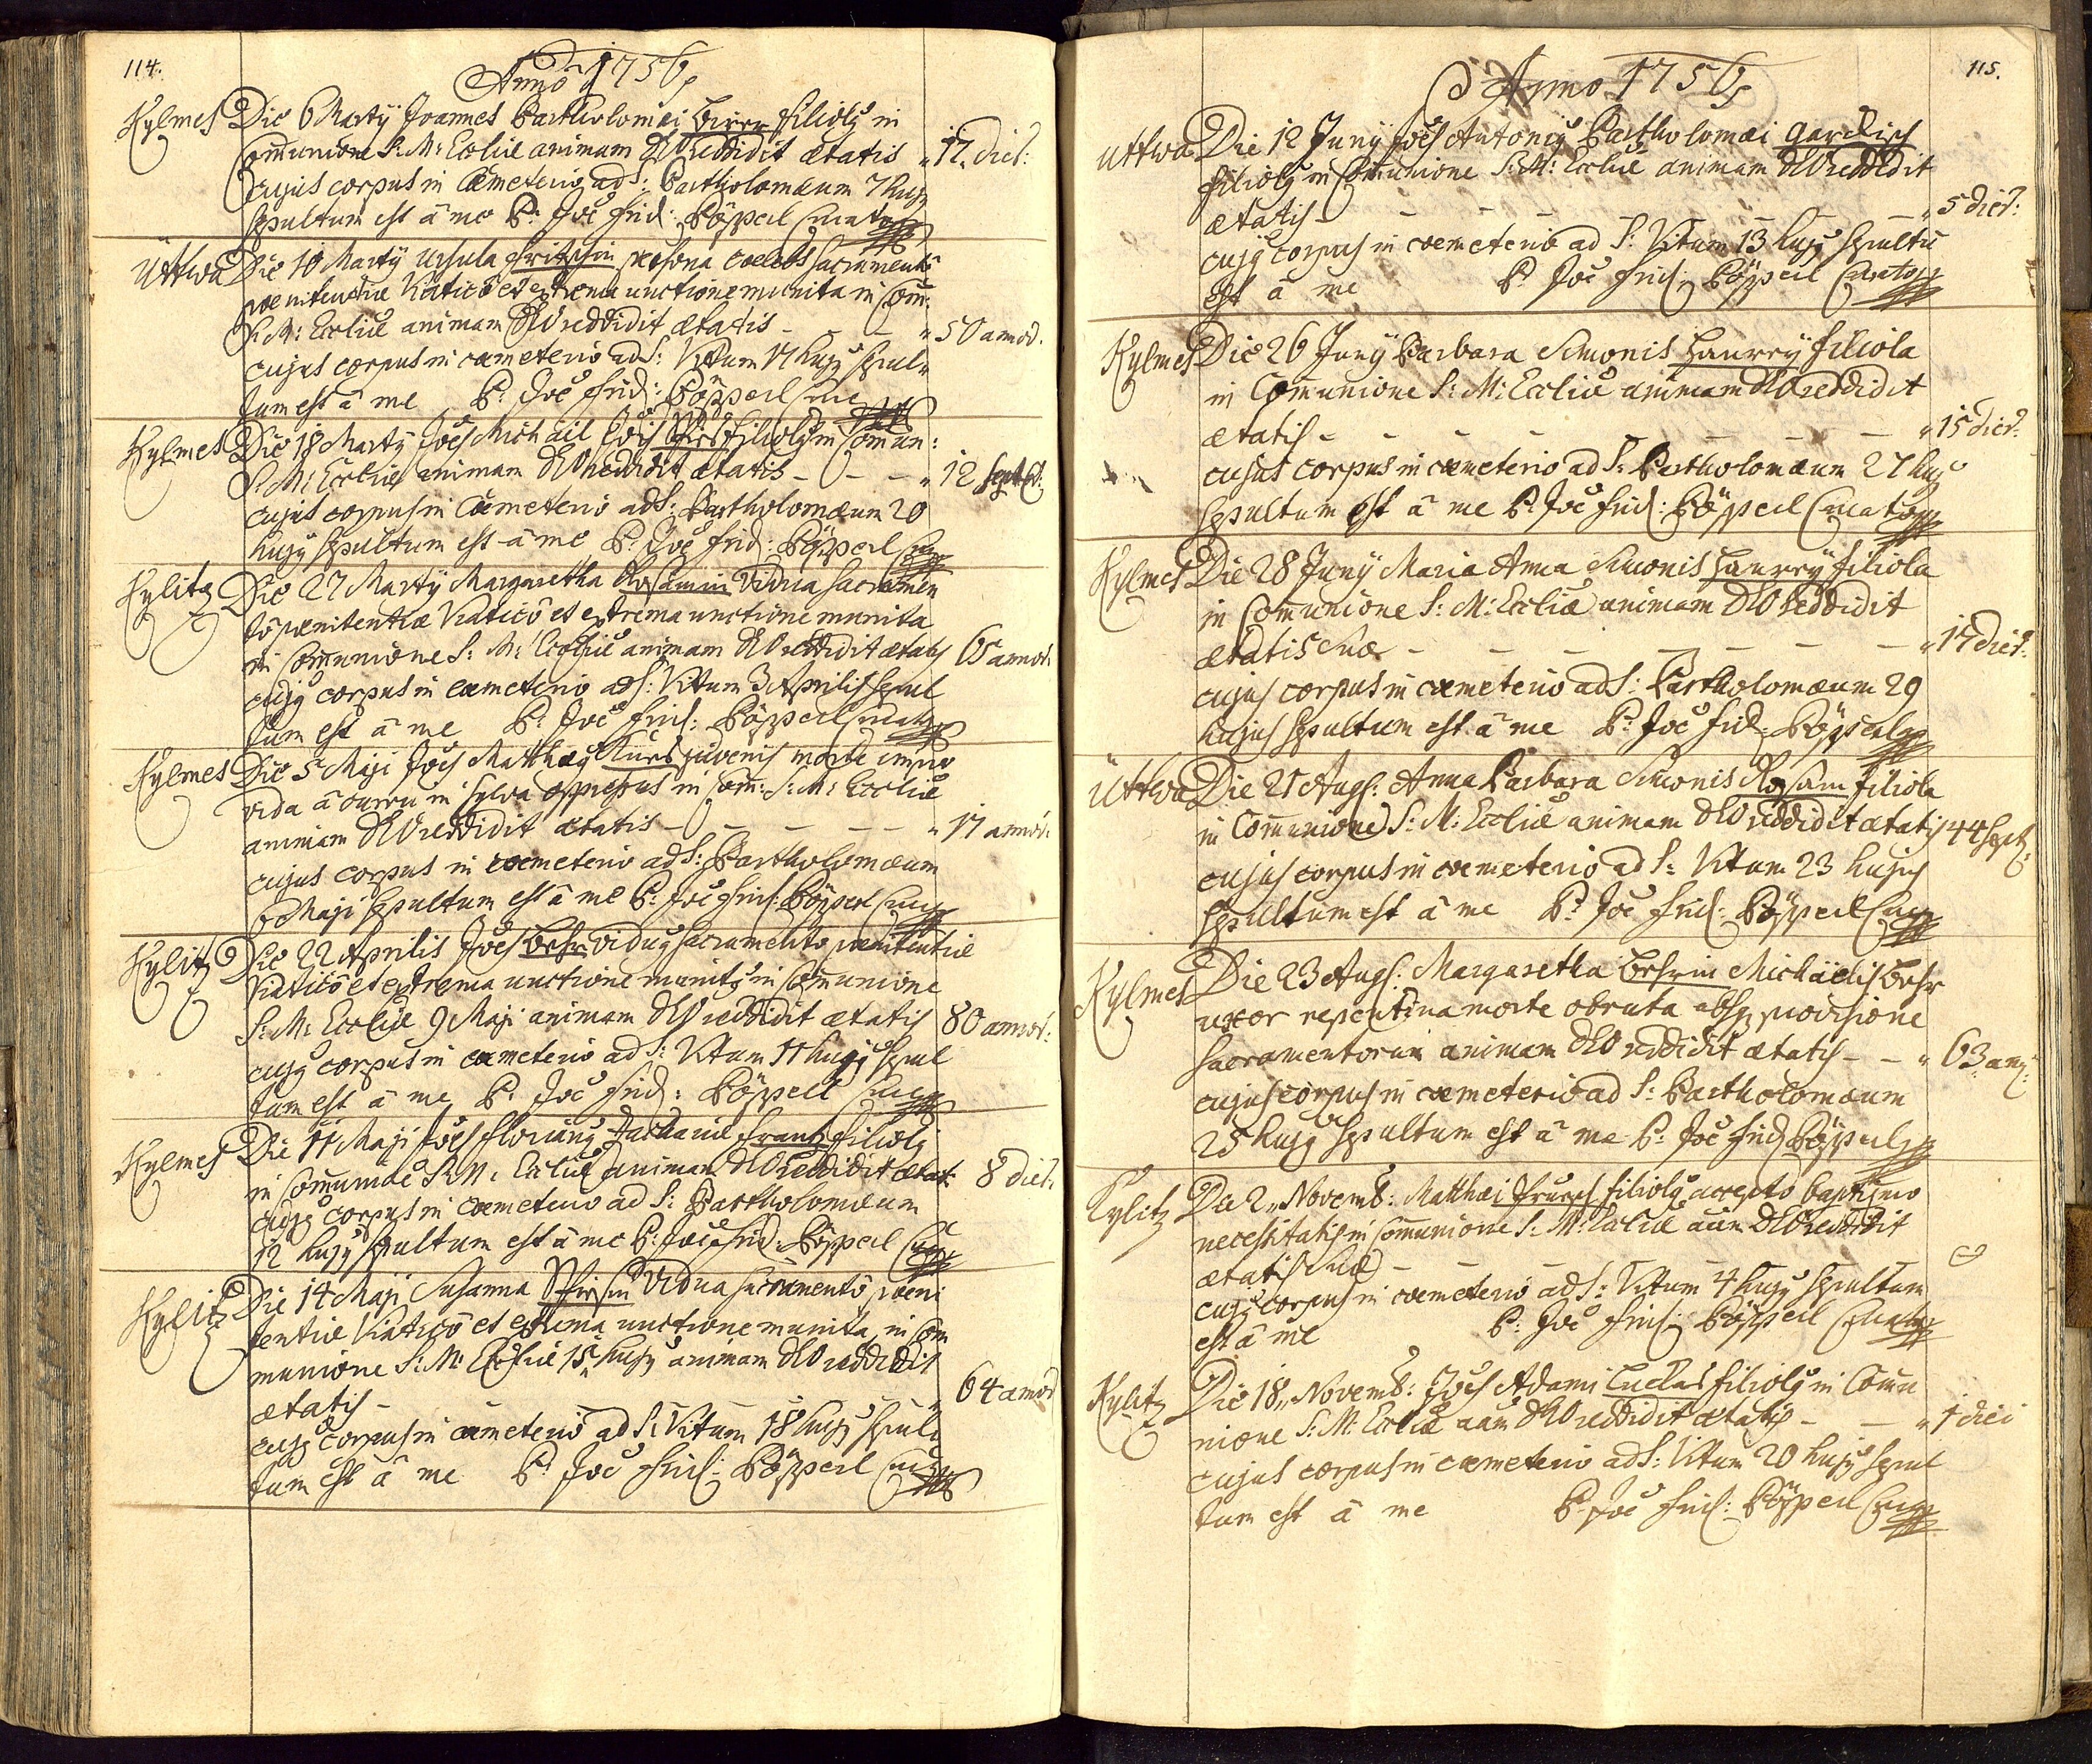 114.
Anno 1756
Kylmes Die 6 Martÿ Joannes Bartholomæi filiolg in
Comunione S: M: Ecclīæ animam DEO reddidit ætatis " 17. dier:
cujus corpus in Cœmeterio ad S: Bartholomæum 7 hujg
sepultum est â me P: Joē Frid: Böpperl Curatog
Üttwa Die 10 Martÿ Ursula Fritschin persona cœlebs sacramentō
pœnitentiæ Viaticō et extrema unctione munita in Com:
S: M: Ecclīæ animam DEO reddidit ætatis - - " 50 annor.
cujus corpus in cœmeterio ad S: Vitum hujg sepul
tum est â me P: Joē Frid: Böpperl
Kylmes Die 18 Martÿ Joēs Michael filiolg in Comun:
S: M: Ecclīæ animam DEO reddidit ætatis - - - " 12 sept:
cujus corpus in Cœmeterio ad S: Bartholomæum 20
hujg sepultum est â me P: Joē Frid: Böpperl
Kylitz Die 27 Martÿ Margaretha Vidua sacramen
tō pœnitentiæ Viaticō et extrema unctione munita
in Comunione S: M: Ecclīæ animam DEO reddidit ætatis 65 annor:
cujg corpus in cœmeterio ad S: Vitum 3 Aprilis sepul
tum est â me P: Joē Frid: Böpperl Curatog
Kylmes Die 5 Maji Joēs Matthæg juvenis morte impro
vida â curru in sylva oppressus in Com: S: M: Ecclīæ
animam DEO reddidit ætatis - - - - " annor:
cujus corpus in cœmeterio ad S: Bartholomæum
6 Maji sepultum est â me P: Joē Frid: Böpperl
Kylitz Die 22 Aprilis Joēs Behr vidug sacramento pœnitentiæ
Viaticō et extrema unctione munitg in Comunione
S: M: Ecclīæ 9 Maji animam DEO reddidit ætatis 80 annor:
cujg corpus in cœmeterio ad S: Vitum 11 hujg sepul
tum est â me P: Joē Frid: Böpperl
Kylmes Die 11 Maji Joēs Floriang Zachariæ Frantz filiolg
in Comunioē S: M: Ecclīæ animam DEO reddidit ætat: 8 dier:
cujg corpus in cœmeterio ad S: Bartholomæum
12 hujg sepultum est â me P: Joē Frid: Böpperl
Kylitz Die 14 Maji Susanna Vidua sacramentō pœni
tentiæ Viaticō et extrema unctione munita in Com
munione S: M: Ecclīæ 15 hujg animam DEO reddidit
ætatis - - - 64 annor
cujg corpus in cœmeterio ad S: Vitum 18 hujg sepul
tum est â me P: Joē Frid: Böpperl
115.
Anno 1756
Üttwa Die 12 Junÿ Joēs Antonig Bartholomæi
filiolg in Comunione S: M: Ecclīæ animam DEO reddidit
ætatis - - - - - - " 5 dier:
cujg corpus in cœmeterio ad S: Vitum 13 hujg sepultū
est â me P: Joē Frid: Böpperl Curatog
Kylmes Die 26 Junÿ Barbara Simonis filiola
in Comunione S: M: Ecclīæ animam DEO reddidit
ætatis - - - - - - - " 15 dier:
cujus corpus in cœmeterio ad S: Bartholomæum 27 hujg
sepultum est â me P: Joē Frid: Böpperl Curatog
Kylmes Die 28 Junÿ Maria Anna Simonis filiola
in Comunione S: M: Ecclīæ animam DEO reddidit
ætatis suæ - - - - - - " 17 dier:
cujus corpus in cœmeterio ad S: Bartholomæum 29
hujus sepultum est â me P: Joē Frid: Böpperl
Üttwa Die 21 Aug: Anna Barbara Simonis filiola
in Comunione S: M: Ecclīæ animam DEO reddidit ætatis 44 sept:
cujus corpus in cœmeterio ad S: Vitum 23 hujus
sepultum est â me P: Joē Frid: Böpperl
Kylmes Die 23 Aug: Margaretha Behrin Michäelis Behr
uxor repentina morte obruta absq provisione
sacramentorum animam DEO reddidit ætatis - - " 63 añ:
cujus corpus in cœmeterio ad S: Bartholomæum
25 hujg sepultum est â me P: Joē Frid: Böpperl
Kylitz Die 2. Novemb: Matthæi filiolg accepto baptismo
necessitatis in Comunione S: M: Ecclīæ aīam DEO reddidit
ætatis suæ - - - - -
cujg corpus in cœmeterio ad S: Vitum 4 hujg sepultum
est â me P: Joē Frid: Böpperl Curatog
Kylitz Die 18. Novemb: Joēs Adami filiolg in Comu
nione S: M: Ecclīæ aīam DEO reddidit ætatis - - " 1 diei
cujus corpus in cœmeterio ad S: Vitum 20 hujg sepul
tum est â me P: Joē Frid: Böpperl